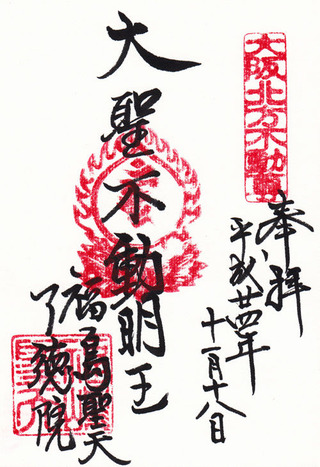 大阪北方不動
奉拝
平成廿四年
十一月十八日
大聖不動明王
福島聖天
了徳院